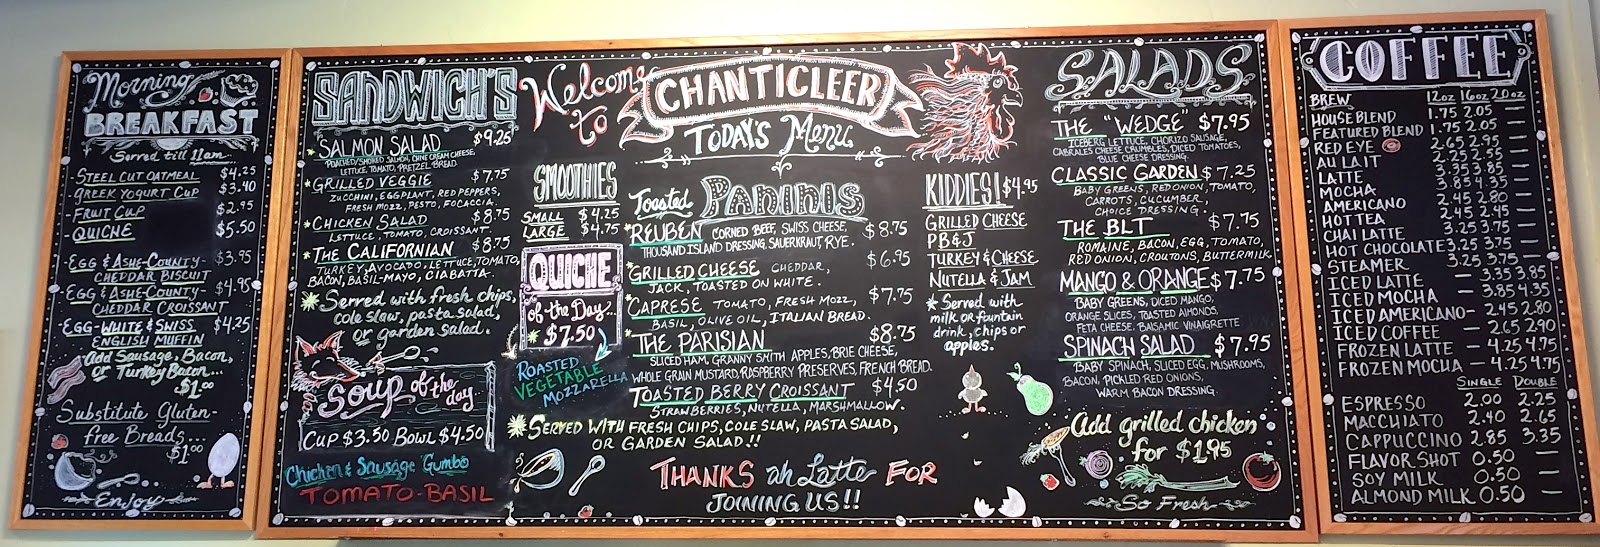 Morning
BREAKFAST
Served till 11am...
- STEEL CUT OATMEAL $4.25
- GREEK YOGURT CUP $3.40
- FRUIT CUP $2.95
- QUICHE $5.50
- EGG & ASHE-COUNTY- $3.95
CHEDDAR BISCUIT
- EGG & ASHE-COUNTY $4.95
CHEDDAR CROISSANT
- EGG-WHITE & SWISS $4.25
ENGLISH MUFFIN
Add Sausage, Bacon,
or Turkey Bacon...
$1.00
Substitute Gluten-
free Breads...
$1.00
Enjoy
SANDWICH'S
SALMON SALAD $9.25
POACHED/SMOKED SALMON, CHIVE CREAM CHEESE,
LETTUCE, TOMATO, PRETZEL BREAD.
*GRILLED VEGGIE $7.75
ZUCCHINI, EGGPLANT, RED PEPPERS,
FRESH MOZZ, PESTO, FOCACCIA.
*CHICKEN SALAD $8.75
LETTUCE, TOMATO, CROISSANT.
*THE CALIFORNIAN $8.75
TURKEY, AVOCADO, LETTUCE, TOMATO,
BACON, BASIL-MAYO, CIABATTA.
*Served with fresh chips,
cole slaw, pasta salad,
or garden salad.
Soup of the
day...
CUP $3.50 BOWL $4.50
Chicken & Sausage Gumbo
TOMATO-BASIL
Welcome
to
CHANTICLEER
TODAY'S Menu
SMOOTHIES
SMALL $4.25
LARGE $4.75
QUICHE
of the Day...
* $7.50
ROASTED
VEGETABLE
MOZZARELLA
Toasted PANINIS
*REUBEN CORNED BEEF, SWISS CHEESE, $8.75
THOUSAND ISLAND DRESSING, SAUERKRAUT, RYE.
*GRILLED CHEESE CHEDDAR, $6.95
JACK, TOASTED ON WHITE.
*CAPRESE TOMATO, FRESH MOZZ, $7.75
BASIL, OLIVE OIL, ITALIAN BREAD.
*THE PARISIAN $8.75
SLICED HAM, GRANNY SMITH APPLES, BRIE CHEESE,
WHOLE GRAIN MUSTARD, RASPBERRY PRESERVES, FRENCH BREAD.
TOASTED BERRY CROISSANT $4.50
STRAWBERRIES, NUTELLA, MARSHMALLOW.
*SERVED WITH FRESH CHIPS, COLE SLAW, PASTA SALAD,
OR GARDEN SALAD!!
THANKS ah Latte FOR
JOINING US!!
KIDDIES! $4.95
GRILLED CHEESE
PB&J
TURKEY & CHEESE
NUTELLA & JAM
* Served with
milk or fountain
drink, chips or
apples.
SALADS
THE "WEDGE" $7.95
ICEBERG LETTUCE, CHORIZO SAUSAGE,
CABRALES CHEESE CRUMBLES, DICED TOMATOES,
BLUE CHEESE DRESSING.
CLASSIC GARDEN $7.25
BABY GREENS, RED ONION, TOMATO,
CARROTS, CUCUMBER,
CHOICE DRESSING.
THE BLT $7.75
ROMAINE, BACON, EGG, TOMATO,
RED ONION, CROUTONS, BUTTERMILK
MANGO & ORANGE $7.75
BABY GREENS, DICED MANGO,
ORANGE SLICES, TOASTED ALMONDS,
FETA CHEESE, BALSAMIC VINAIGRETTE
SPINACH SALAD $7.95
BABY SPINACH, SLICED EGG, MUSHROOMS,
BACON, PICKLED RED ONIONS,
WARM BACON DRESSING.
Add grilled chicken
for $1.95
So Fresh
COFFEE
BREW 12oz 16oz 20oz
HOUSE BLEND 1.75 2.05 —
FEATURED BLEND 1.75 2.05 —
RED EYE 2.65 2.95 —
AU LAIT 2.25 2.55 —
LATTE 3.35 3.85 —
MOCHA 3.85 4.35 —
AMERICANO 2.45 2.80 —
HOT TEA 2.45 2.45 —
CHAI LATTE 3.25 3.75 —
HOT CHOCOLATE 3.25 3.75 —
STEAMER 3.25 3.75 —
ICED LATTE — 3.35 3.85
ICED MOCHA — 3.85 4.35
ICED AMERICANO — 2.45 2.80
ICED COFFEE — 2.65 2.90
FROZEN LATTE — 4.25 4.75
FROZEN MOCHA — 4.25 4.75
SINGLE DOUBLE
ESPRESSO 2.00 2.25
MACCHIATO 2.40 2.65
CAPPUCCINO 2.85 3.35
FLAVOR SHOT 0.50 —
SOY MILK 0.50 —
ALMOND MILK 0.50 —